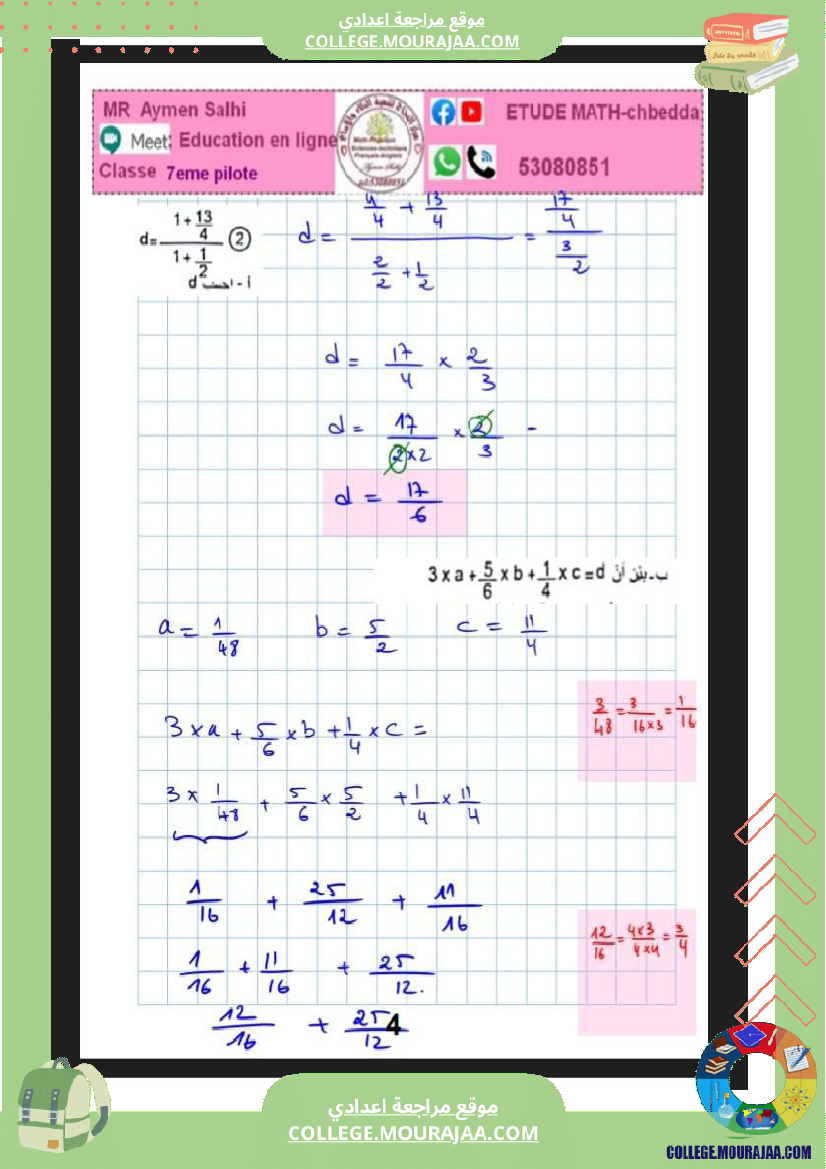 موقع مراجعة اعدادي
COLLEGE.MOURAJAA.COM
MR Aymen Salhi
Meet: Education en ligne
Classe 7eme pilote
ETUDE MATH-chbedda
53080851
d= (1+13/4)/(1+1/2) ②
أ - احسب d
d = (4/4 + 13/4)/(2/2 + 1/2) = (17/4)/(3/2)
d = 17/4 × 2/3
d = 17/(2×2) × 2/3 =
d = 17/6
ب- بيّن أنّ 3 x a + 5/6 x b + 1/4 x c = d
a = 1/48 b = 5/2 c = 11/4
3/48 = 3/(16×3) = 1/16
3 × a + 5/6 × b + 1/4 × c =
3 × 1/48 + 5/6 × 5/2 + 1/4 × 11/4
1/16 + 25/12 + 11/16
12/16 = (4×3)/(4×4) = 3/4
1/16 + 11/16 + 25/12.
12/16 + 25/12
4
موقع مراجعة اعدادي
COLLEGE.MOURAJAA.COM
COLLEGE.MOURAJAA.COM